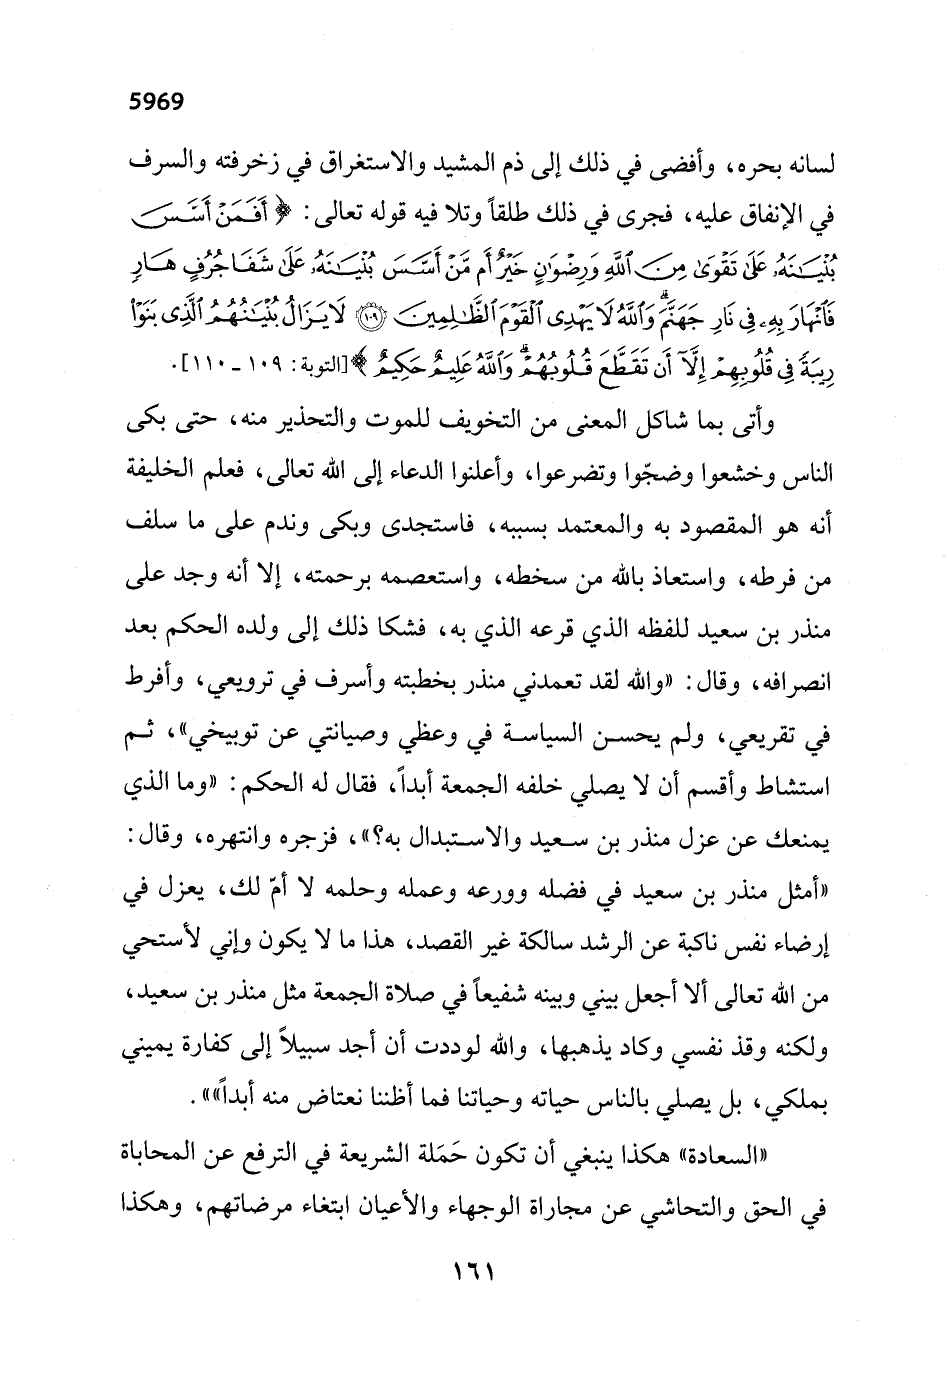 5969
لسانه بحره، وأفضى في ذلك إلى ذم المشيد والاستغراق في زخرفته والسرف
في الإنفاق عليه، فجرى في ذلك طلقاً وتلا فيه قوله تعالى: ﴿أَفَمَنْ أَسَّسَ
بُنْيَـٰنَهُۥ عَلَىٰ تَقْوَىٰ مِنَ ٱللَّهِ وَرِضْوَٰنٍ خَيْرٌ أَم مَّنْ أَسَّسَ بُنْيَـٰنَهُۥ عَلَىٰ شَفَا جُرُفٍ هَارٍ
فَٱنْهَارَ بِهِۦ فِى نَارِ جَهَنَّمَ ۗ وَٱللَّهُ لَا يَهْدِى ٱلْقَوْمَ ٱلظَّـٰلِمِينَ ١٠٩ لَا يَزَالُ بُنْيَـٰنُهُمُ ٱلَّذِى بَنَوْا۟
رِيبَةً فِى قُلُوبِهِمْ إِلَّآ أَن تَقَطَّعَ قُلُوبُهُمْ ۗ وَٱللَّهُ عَلِيمٌ حَكِيمٌ﴾ [التوبة: ١٠٩ ـ ١١٠].
وأتى بما شاكل المعنى من التخويف للموت والتحذير منه، حتى بكى
الناس وخشعوا وضجّوا وتضرعوا، وأعلنوا الدعاء إلى الله تعالى، فعلم الخليفة
أنه هو المقصود به والمعتمد بسببه، فاستجدى وبكى وندم على ما سلف
من فرطه، واستعاذ بالله من سخطه، واستعصمه برحمته، إلا أنه وجد على
منذر بن سعيد للفظه الذي قرعه الذي به، فشكا ذلك إلى ولده الحكم بعد
انصرافه، وقال: «والله لقد تعمدني منذر بخطبته وأسرف في ترويعي، وأفرط
في تقريعي، ولم يحسن السياسة في وعظي وصيانتي عن توبيخي»، ثم
استشاط وأقسم أن لا يصلي خلفه الجمعة أبداً، فقال له الحكم: «وما الذي
يمنعك عن عزل منذر بن سعيد والاستبدال به؟»، فزجره وانتهره، وقال:
«أمثل منذر بن سعيد في فضله وورعه وعمله وحلمه لا أمّ لك، يعزل في
إرضاء نفس ناكبة عن الرشد سالكة غير القصد، هذا ما لا يكون وإني لأستحي
من الله تعالى ألا أجعل بيني وبينه شفيعاً في صلاة الجمعة مثل منذر بن سعيد،
ولكنه وقذ نفسي وكاد يذهبها، والله لوددت أن أجد سبيلاً إلى كفارة يميني
بملكي، بل يصلي بالناس حياته وحياتنا فما أظننا نعتاض منه أبداً»».
«السعادة» هكذا ينبغي أن تكون حَمَلة الشريعة في الترفع عن المحاباة
في الحق والتحاشي عن مجاراة الوجهاء والأعيان ابتغاء مرضاتهم، وهكذا
١٦١